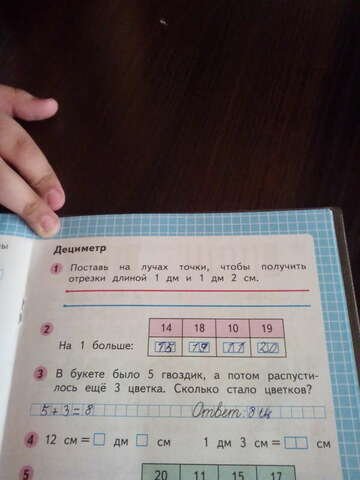 Дециметр
1 Поставь на лучах точки, чтобы получить
отрезки длиной 1 дм и 1 дм 2 см.
2
14 18 10 19
На 1 больше: 15 19 11 20
3 В букете было 5 гвоздик, а потом распусти-
лось ещё 3 цветка. Сколько стало цветков?
5+3=8 Ответ: 8 ц
4 12 см = дм см 1 дм 3 см = см
5
20 11 15 17